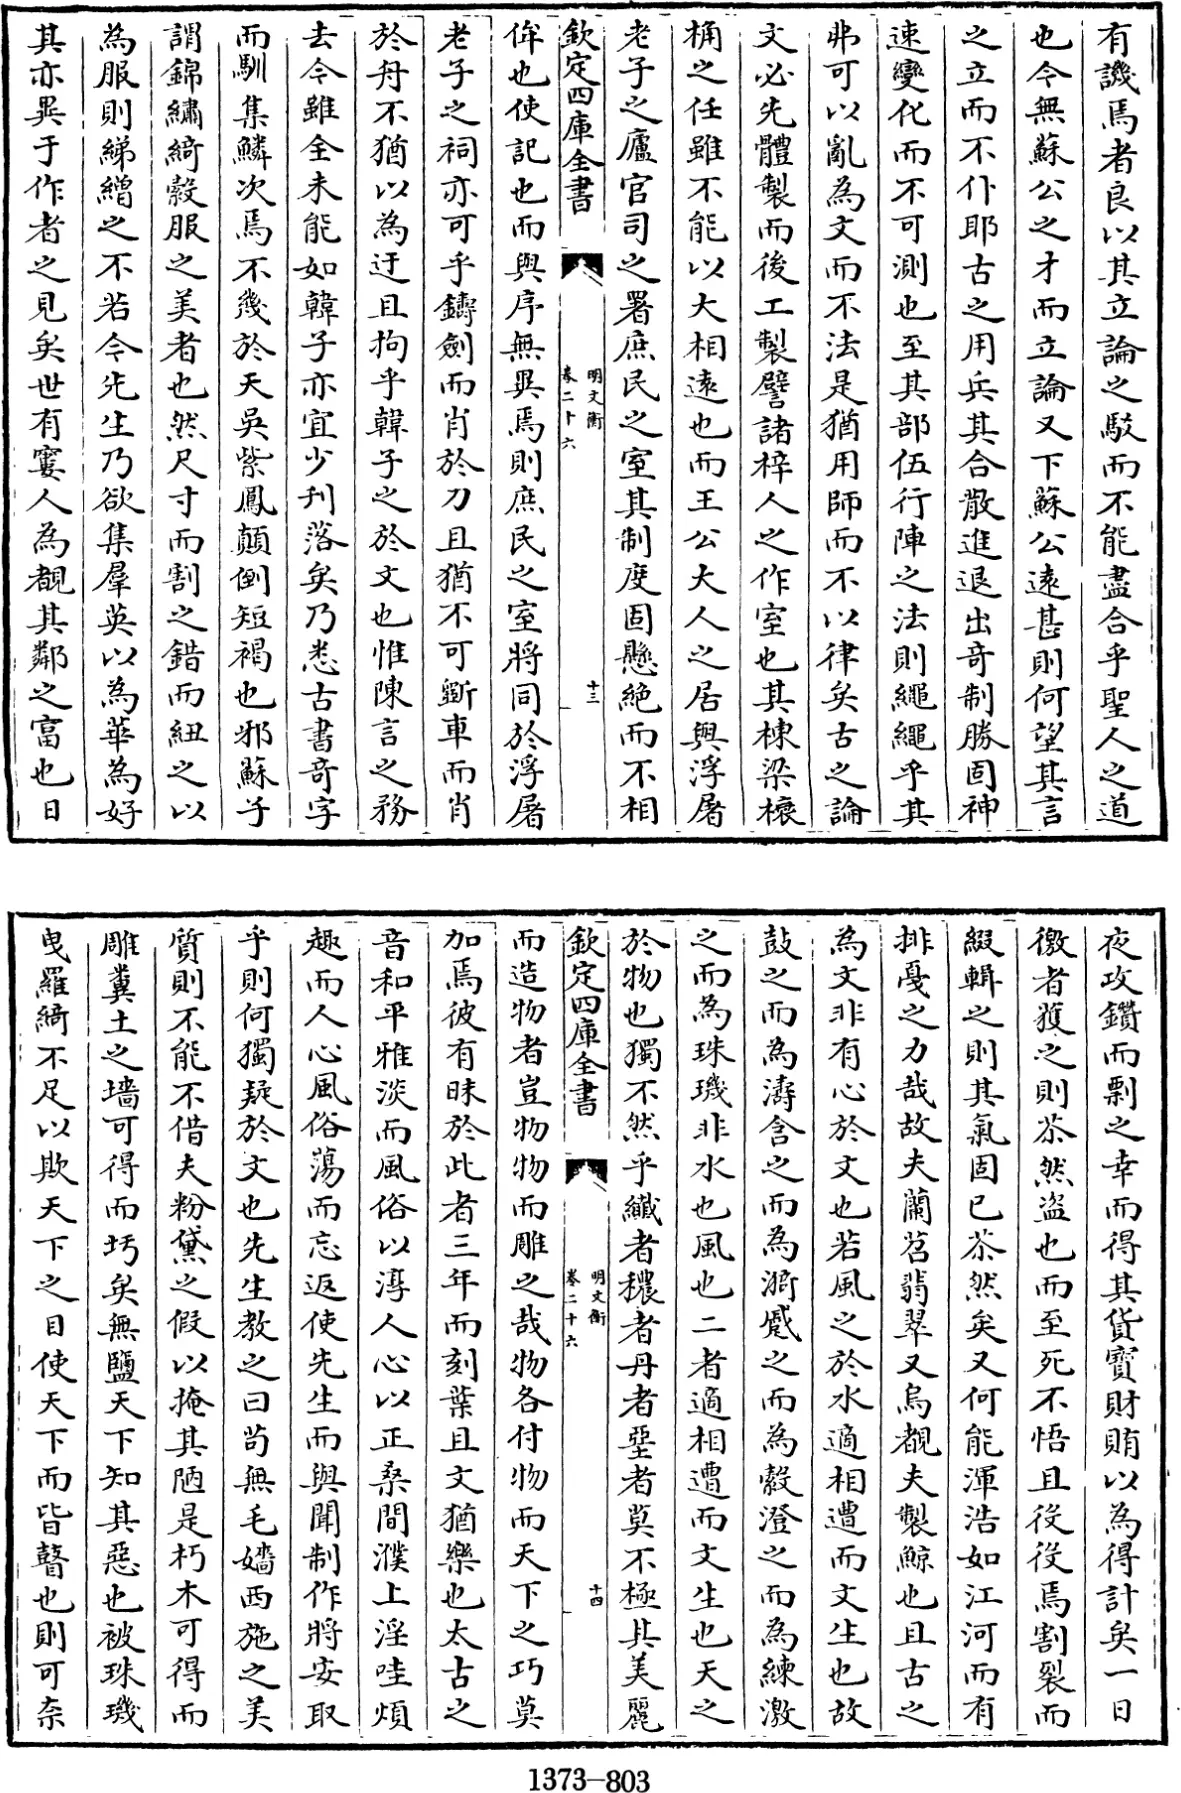 有譏焉者良以其立論之駁而不能盡合乎聖人之道
也今無蘇公之才而立論又下蘇公遠甚則何望其言
之立而不仆耶古之用兵其合散進退出奇制勝固神
速變化而不可測也至其部伍行陣之法則繩繩乎其
弗可以亂為文而不法是猶用師而不以律矣古之論
文必先體製而後工製譬諸梓人之作室也其棟梁榱
桷之任雖不能以大相遠也而王公大人之居與浮屠
老子之廬官司之署庶民之室其制度固懸絶而不相
欽定四庫全書
明文衡
卷二十六
十三
侔也使記也而與序無異焉則庶民之室將同於浮屠
老子之祠亦可乎鑄劍而肖於刀且猶不可斲車而肖
於舟不猶以為迂且拘乎韓子之於文也惟陳言之務
去今雖全未能如韓子亦宜少刋落矣乃悉古書奇字
而馴集鱗次焉不幾於天吳紫鳳顛倒短褐也邪蘇子
謂錦繡綺縠服之美者也然尺寸而割之錯而紐之以
為服則綈繒之不若今先生乃欲集羣英以為華為好
其亦異于作者之見矣世有窶人為覩其鄰之富也日
夜攻鑽而剽之幸而得其貨寳財賄以為得計矣一日
徼者獲之則苶然盜也而至死不悟且役役焉割裂而
綴輯之則其氣固已苶然矣又何能渾浩如江河而有
排戞之力哉故夫蘭苕翡翠又烏覩夫製鯨也且古之
為文非有心於文也若風之於水適相遭而文生也故
鼓之而為濤含之而為漪蹙之而為縠澄之而為練激
之而為珠璣非水也風也二者適相遭而文生也天之
於物也獨不然乎纎者穠者丹者堊者莫不極其美麗
欽定四庫全書
明文衡
卷二十六
十四
而造物者豈物物而雕之哉物各付物而天下之巧莫
加焉彼有昧於此者三年而刻葉且文猶樂也太古之
音和平雅淡而風俗以淳人心以正桑間濮上淫哇煩
趣而人心風俗蕩而忘返使先生而與聞制作將安取
乎則何獨疑於文也先生教之曰茍無毛嬙西施之美
質則不能不借夫粉黛之假以掩其陋是朽木可得而
雕糞土之墻可得而圬矣無鹽天下知其惡也被珠璣
曳羅綺不足以欺天下之目使天下而皆瞽也則可奈
1373—803